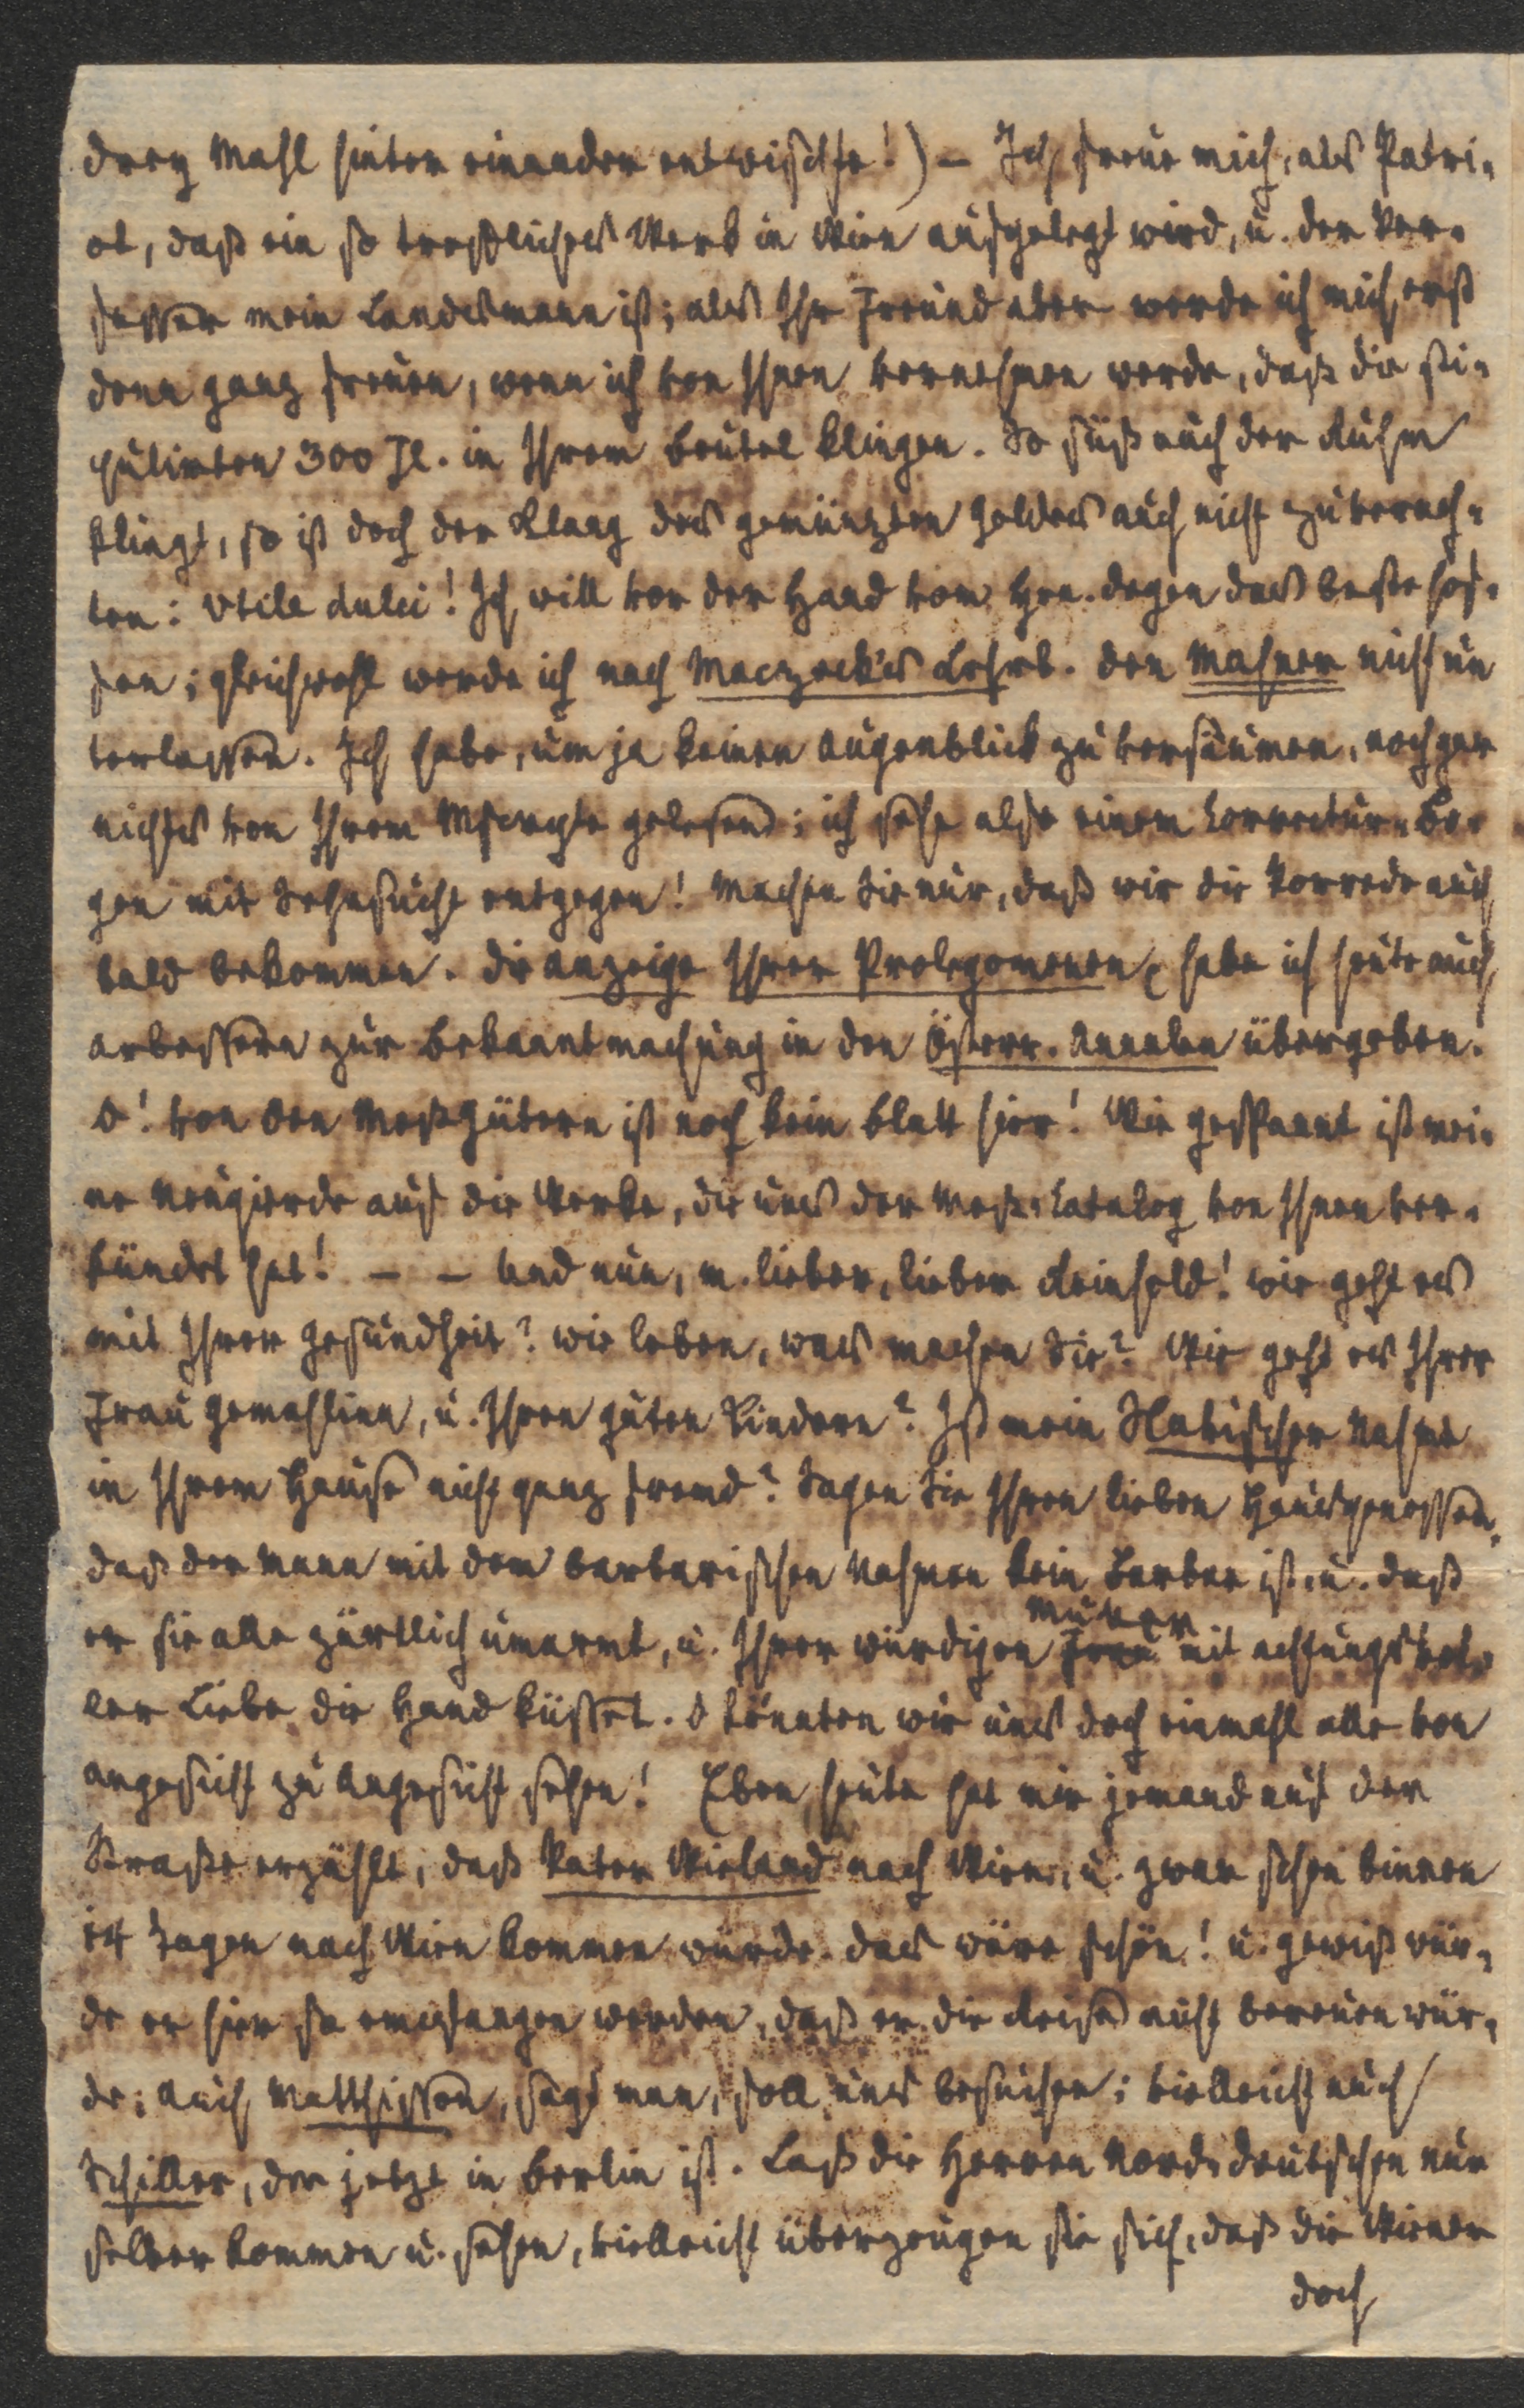 drey Mahl hinter einander entwischte!) – Ich freue mich, als Patri-
ot, daß ein so treffliches Werk in Wien aufgelegt wird, u. der Ver-
fasser mein Landesmann ist; als Ihr Freund aber werde ich mich erst
denn ganz freuen, wenn ich von Ihnen vernehmen werde, daß die sti-
pulirten 300 Fl. in Ihrem Beutel klingen. So süß auch der Ruhm
klingt, so ist doch der Klang des gemünzten Goldes auch nicht zu verach-
ten: Vtile dulci! Ich will vor der Hand vom Hrn. Degen das beste hof-
fen; gleichwohl werde ich nach Maczeck's Lehrb. den Mahner nicht un
terlassen. Ich habe, um ja keinen Augenblick zu versäumen, noch gar
nichts von Ihrem Mscrpte gelesen; ich sehe also einem Correctur-Bo-
gen mit Sehnsucht entgegen! Machen Sie nur, daß wir die Vorrede auch
bald bekommen. Die Anzeige Ihrer Prolegomenen habe ich heute auch
zur Bekanntmachung in den Österr. Annalen übergeben.
O! von den Meßgütern ist noch kein Blatt hier! Wie gespannt ist mei-
ne Neugierde auf die Werke, die uns der Meß-Catalog von Ihnen ver-
kündet hat! – – Und nun, m. lieber, lieber Reinhold! wie geht es
mit Ihrer Gesundheit? wie leben, was machen Sie? Wie geht es Ihrer
Frau Gemahlinn, u. Ihren guten Kindern? Ist mein Slavischer Nahme
in Ihrem Hause nicht ganz fremd? Sagen Sie Ihren lieben Hausgenossen,
daß der Mann mit dem barbarischen Nahmen kein Barbar ist, u. daß
er sie alle zärtlich umarmt, u. Ihrer würdigen Mutter mit achtungsvol-
ler Liebe die Hand küsset. O könnten wir uns doch einmahl alle von
Angesicht zu Angesicht sehen! Eben heute hat mir jemand auf der
Straße erzählt, daß Vater Wieland nach Wien, u. zwar schon binnen
14 Tagen nach Wien kommen würde. Das wäre schön! u. gewiß wür-
de er hier so empfangen werden, daß er die Reise nicht bereuen wür-
de; Auch Matthisson, sagt man, soll uns besuchen; vielleicht auch
Schiller, der jetzt in Berlin ist. Laß die Herren Norddeutschen nur
selber kommen u. sehen, vielleicht überzeugen sie sich, daß die Wiener
doch